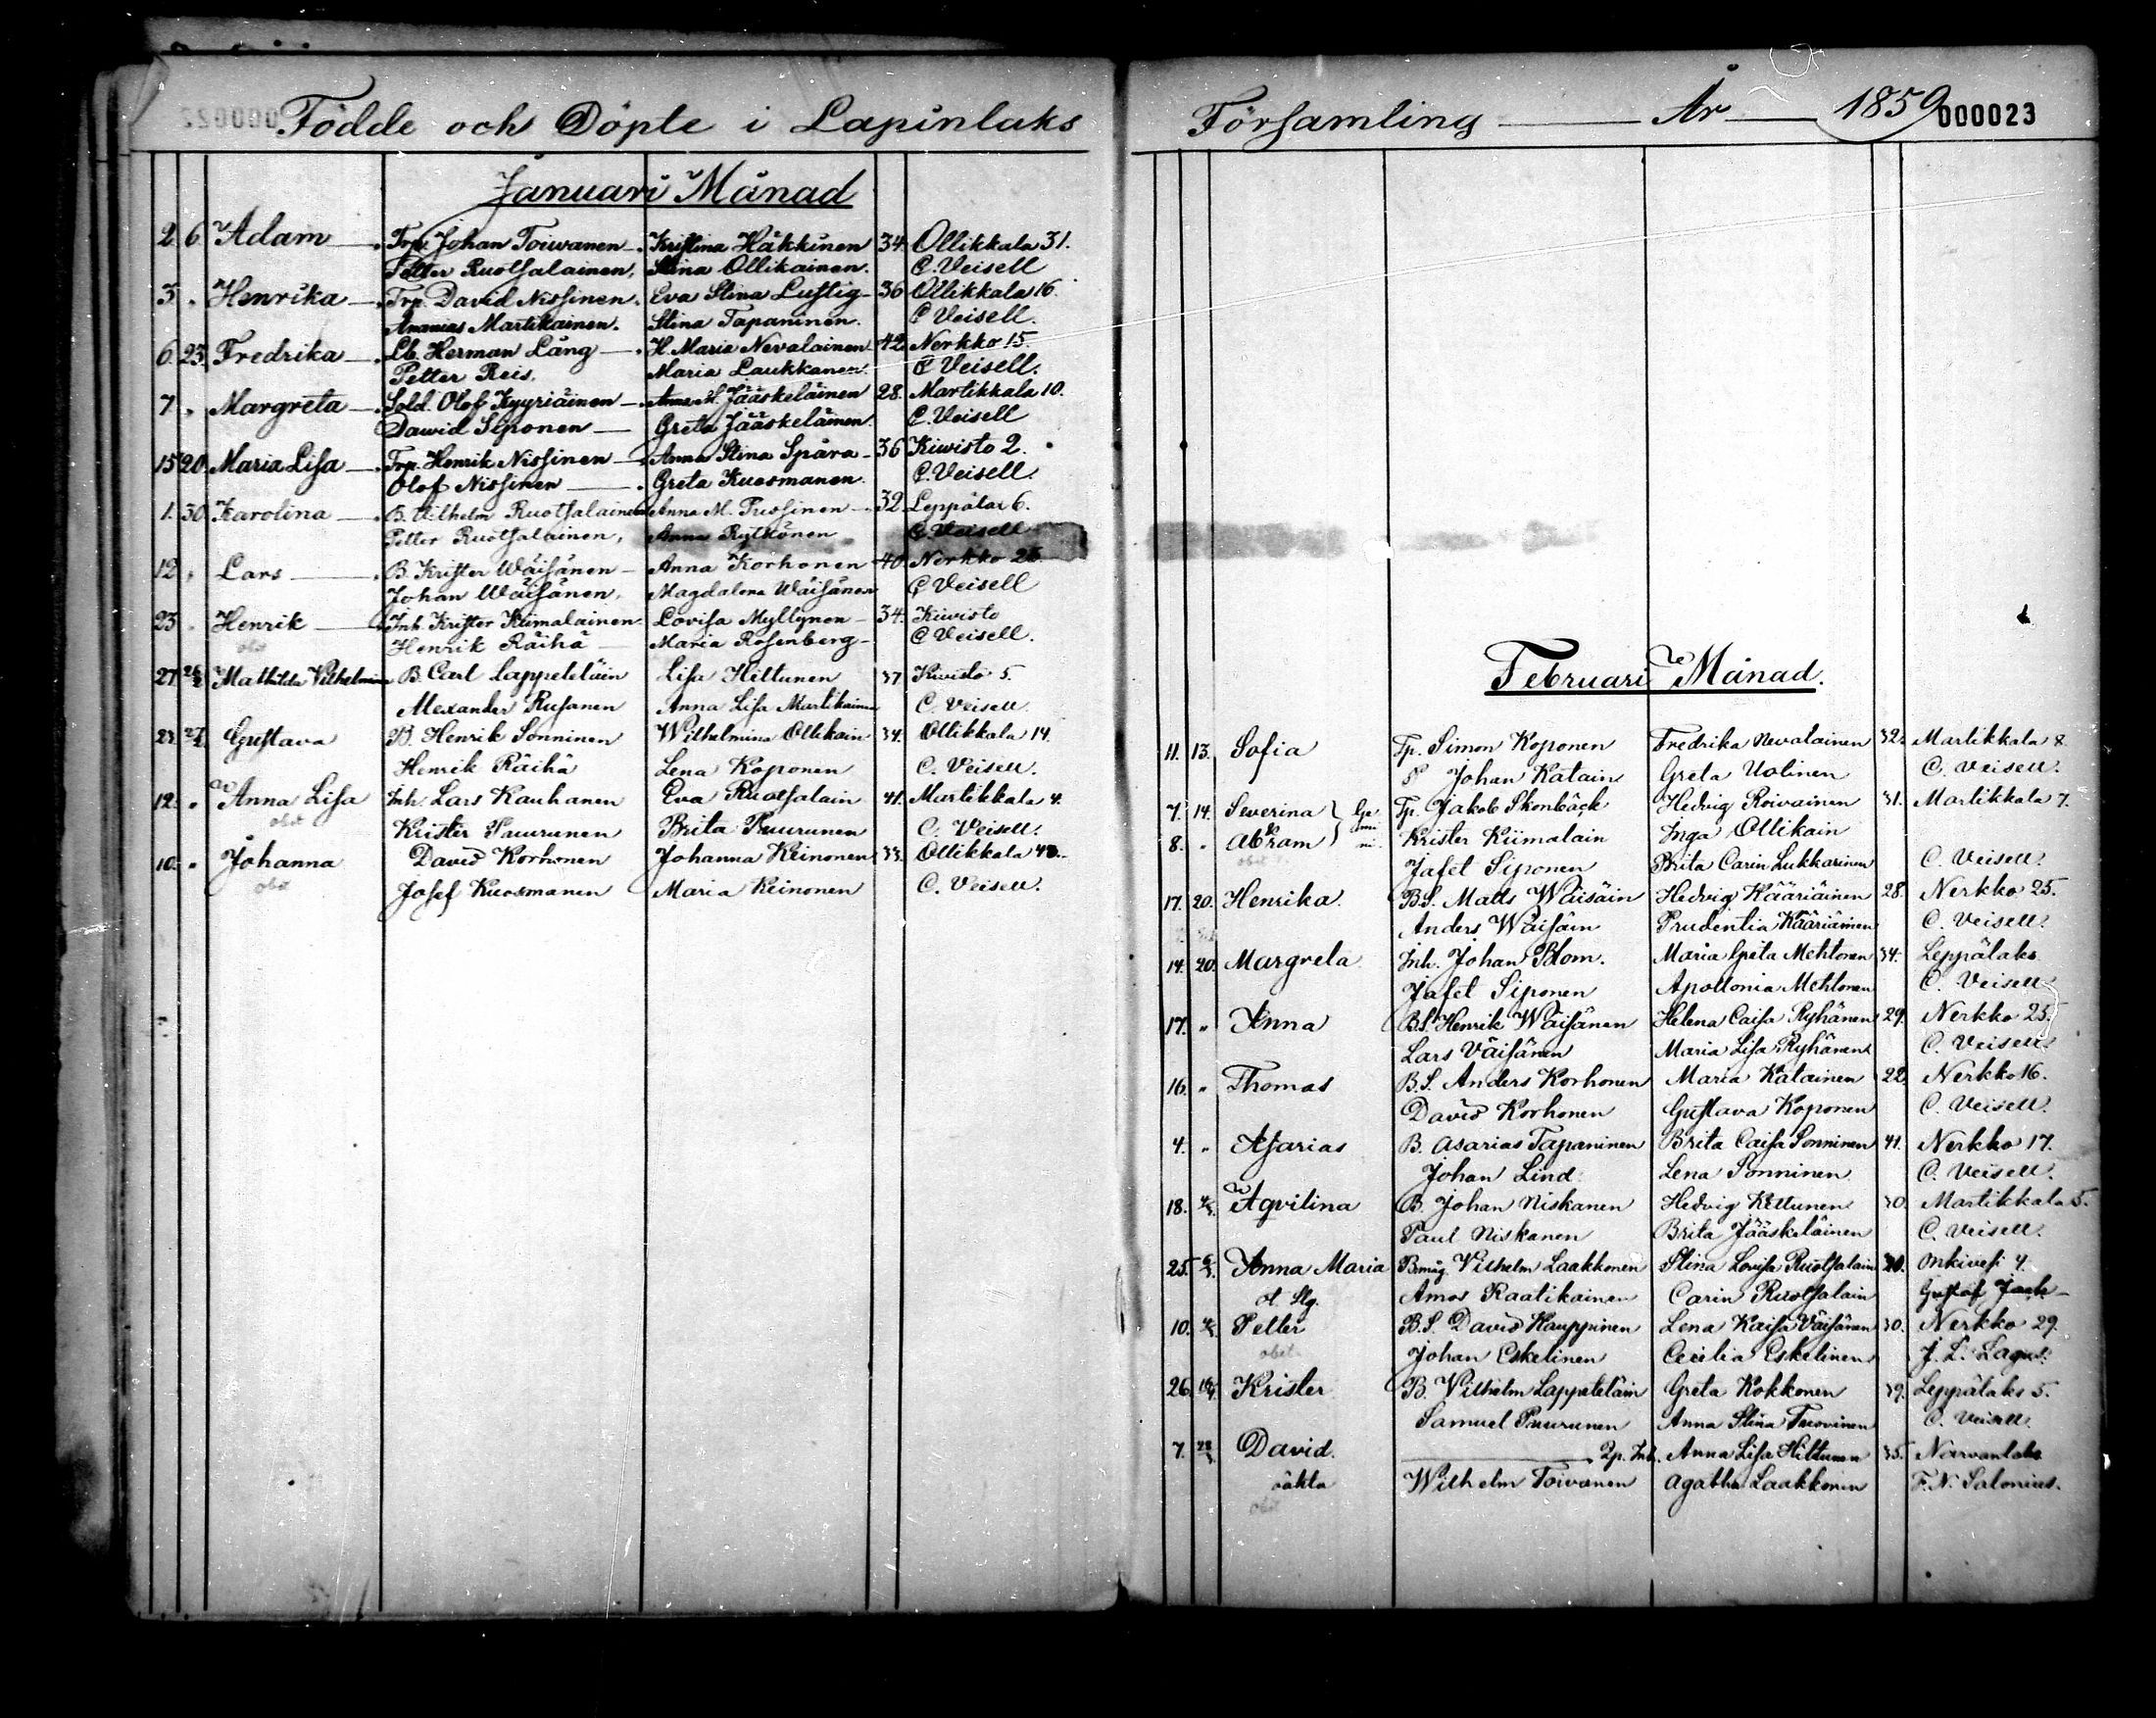 Födde och Döpte i Lapinlaks
Januari Månad
2 6 Adam Trp. Johan Toiwanen Kristina Häkkinen 34. Ollikkala 31.
Petter Ruotsalainen, Stina Ollikainen. C. Veisell
3 " Henrika Trp. David Nissinen. Eva Stina Lustig 36 Ollikkala 16.
Ananias Martikainen. Stina Tapaninen. C Veisell.
6. 23. Fredrika Lb. Herman Lång H. Maria Nevalainen 42. Nerkko 15.
Petter Reis. Maria Laukkanen. C Veisell.
7 " Margreta Sold. Olof Kyyriäinen Anna M. Jääskeläinen 28. Martikkala 10.
Dawid Siponen Greta Jääskeläinen. C. Veisell
15 20 Maria Lisa Trp. Henrik Nissinen Anna Stina Spåra 36 Kiwisto 2.
Olof Nissinen Greta Kuosmanen. C. Veisell.
1. 30 Karolina B. Vilhelm Ruotsalainen Anna M. 32. 6.
Petter Ruotsalainen, Anna Rytkönen C. Veisell
12 " Lars B. Krister Wäisänen Anna Korhonen 40. Nerkko
Johan Wäisänen, Magdalena Wäisänen C Veisell
23 " Henrik Inh. Krister Kiimalainen Lovisa Myllynen 34. Kiwisto
obit Henrik Räihä Maria Rosenberg C Veisell.
27. Mathilda Vilhelmina B. Carl Lappeteläin Lisa Hiltunen 37 Kiwistö 5.
Alexander Rusanen Anna Lisa Martikainen C. Veisell
23. Gustava B. Henrik Sonninen Wilhelmina Ollikain 34. Ollikkala 14.
Henrik Räihä Lena Koponen C. Veisell.
12. " Anna Lisa Inh. Lars Kauhanen Eva Ruotsalain 41. Martikkala 4.
obit Krister Puurunen Brita Puurunen C. Veisell.
10. " Johanna David Korhonen Johanna Keinonen 33. Ollikkala
obit Josef Kuosmanen Maria Keinonen C. Veisell.
Församling År 1859 000023
Februari Månad.
11. 13. Sofia Tp. Simon Koponen Fredrika Nevalainen 32. Martikkala 8.
Johan Katain Greta Uotinen C. Veisell.
7. 14. Severina Gemini Tp. Jakob Skonbäck Hedvig Roivainen 31. Martikkala 7.
8. " Abram Krister Kiimalain Inga Ollikain
obit Jafet Siponen Brita Carin Lukkarinen C. Veisell.
17. 20. Henrika B.S. Matts Wäisäin Hedvig Kääriäinen 28. Nerkko 25.
Anders Wäisäin Prudentia Kääriäinen C. Veisell.
14. 20. Margreta Inh. Johan Blom. Maria Greta Mehtonen 34. Leppälaks
Jafet Siponen Apollonia Mehtonen C. Veisell
17. " Anna B.S. Henrik Wäisänen Helena Caisa Ryhänen 29. Nerkko 25.
Lars Väisänen Maria Lisa Ryhänen C. Veisell
16. " Thomas B.S. Anders Korhonen Maria Katainen 22. Nerkko 16.
David Korhonen Gustava Koponen C. Veisell.
4. " Asarias B. Asarias Tapaninen Brita Caisa Sonninen 41. Nerkko 17.
Johan Lind Lena Sonninen C. Veisell.
18. 4/3. Aqvilina B. Johan Niskanen Hedvig Kettunen 30. Martikkala 5.
Paul Niskanen Brita Jääskeläinen C. Veisell.
25. 6/3. Anna Maria Bmåg. Vilhelm Laakkonen Stina Lovisa Ruotsalain Onkivesi 4.
Amos Raatikainen Carin Ruotsalain Gustaf
10. Petter B.S. David Kauppinen Lena Kaisa Väisänen 30. Nerkko 29.
obit Johan Eskelinen Cecilia Eskelinen J. L. Lagus.
26. Krister B. Vilhelm Lappeteläin Greta Kokkonen 39. Leppälaks 5.
Samuel Puurunen Anna Stina Tuovinen C. Veisell
7. David. Inh. Anna Lisa Hiltunen 35. Närvänlaks
oäkta Wilhelm Toivanen Agatha Laakkonen F. N. Salonius.
obit